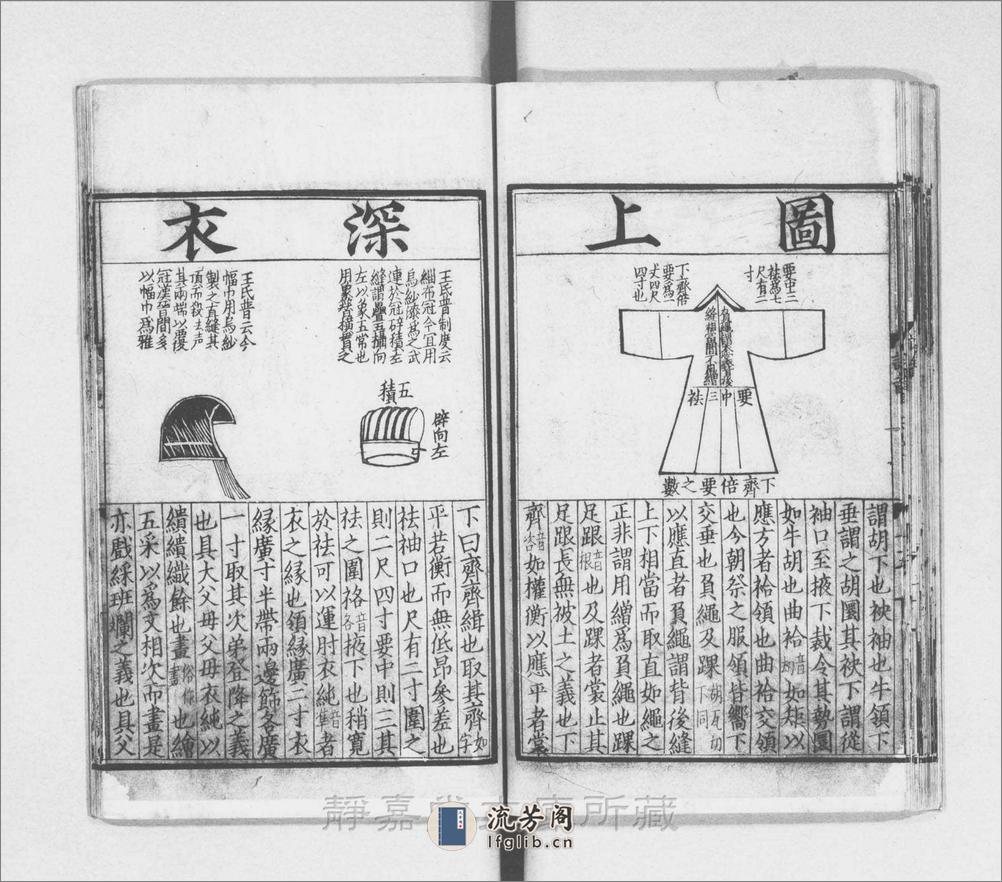 圖上
要中三
袪爲七
尺有二
寸
下齊倍
要爲一
丈四尺
四寸也
要中三袪
下齊倍要之數
謂胡下也袂袖也牛領下
垂謂之胡圜其袂下謂從
袖口至掖下裁令其勢圜
如牛胡也曲袷音劫如矩以
應方者袷領也曲袷交領
也今朝祭之服領皆嚮下
交垂也負繩及踝胡瓦切下同
以應直者負繩謂背後縫
上下相當而取直如繩之
正非謂用繒爲負繩也踝
足跟音根也及踝者裳止其
足跟長無被土之義也下
齊音咨如權衡以應平者裳
深衣
王氏普制度云
緇布冠今宜用
烏紗漆爲之武
連於冠辟積左
縫謂疊五摺向
左以象五常也
用
五積
辟向左
王氏普云今
幅巾用烏紗
製之直縫其
頂而殺去声
其兩端以覆
冠漢晉間多
以幅巾爲雅
下曰齊齊緝也取其齊如字
平若衡而無低昂參差也
袪袖口也尺有二寸圍之
則二尺四寸要中則三其
袪之圍袼音各掖下也稍寬
於袪可以運肘衣純音準者
衣之緣也領緣廣二寸衣
緣廣寸半帶兩邊飾各廣
一寸取其次弟登降之義
也具大父母父母衣純以
繢繢織餘也畫俗作畵也繪
五采以爲文相次而畫是
亦戲綵班斕之義也具父
靜嘉堂文庫所藏
流芳阁
lfglib.cn